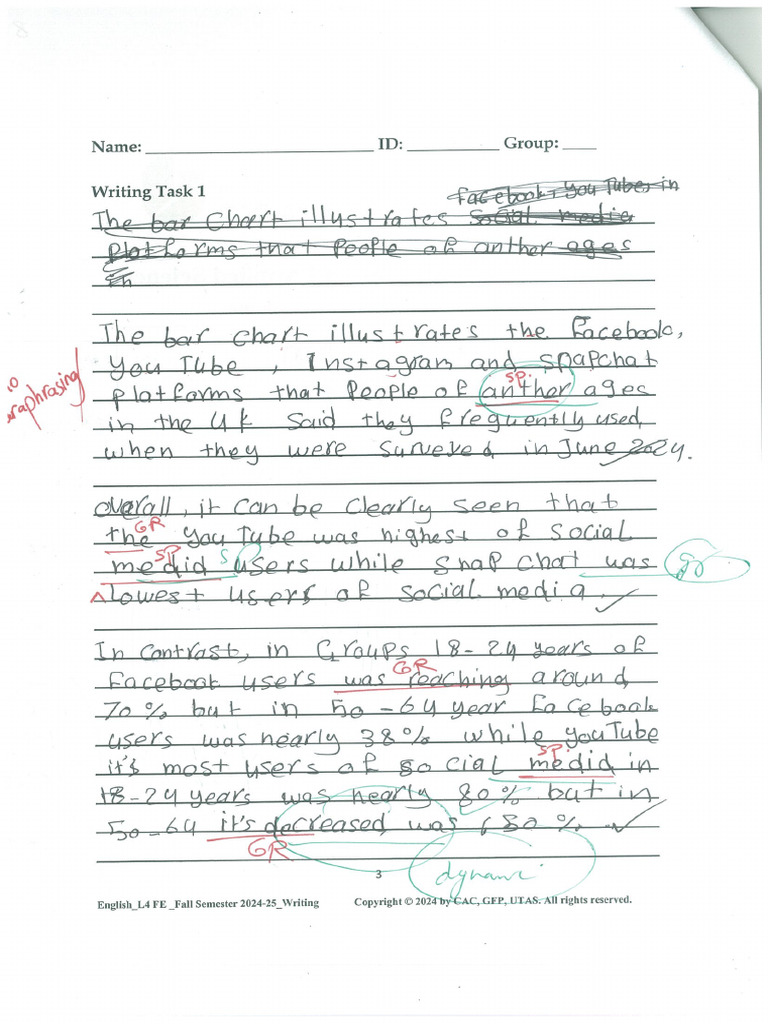 Name: ____________ ID: ________ Group: ____
Writing Task 1
Facebook, You Tube, in
The bar Chart illustrates Social media
Platforms that People of anther ages
in
The bar chart illustrates the Facebook,
You Tube, Instagram and Snapchat
platforms that People of anther ages
SP.
in the Uk Said they frequently used
when they were Surveyed in June 2024.
paraphrasing
overall, it can be clearly seen that
GR
the You Tube was highest of social
SP S
medid users while Snap Chat was
lowest users of social media
In contrast, in Groups 18-24 years of
GR
Facebook users was reaching around
70% but in 50-64 year Facebook
users was nearly 38% while YouTube
SP.
it's most users of social medid in
18-24 years was nearly 80% but in
50-64 it's decreased was 50%
GR
3
English_L4 FE _Fall Semester 2024-25_Writing Copyright © 2024 by CAC, GFP, UTAS. All rights reserved.